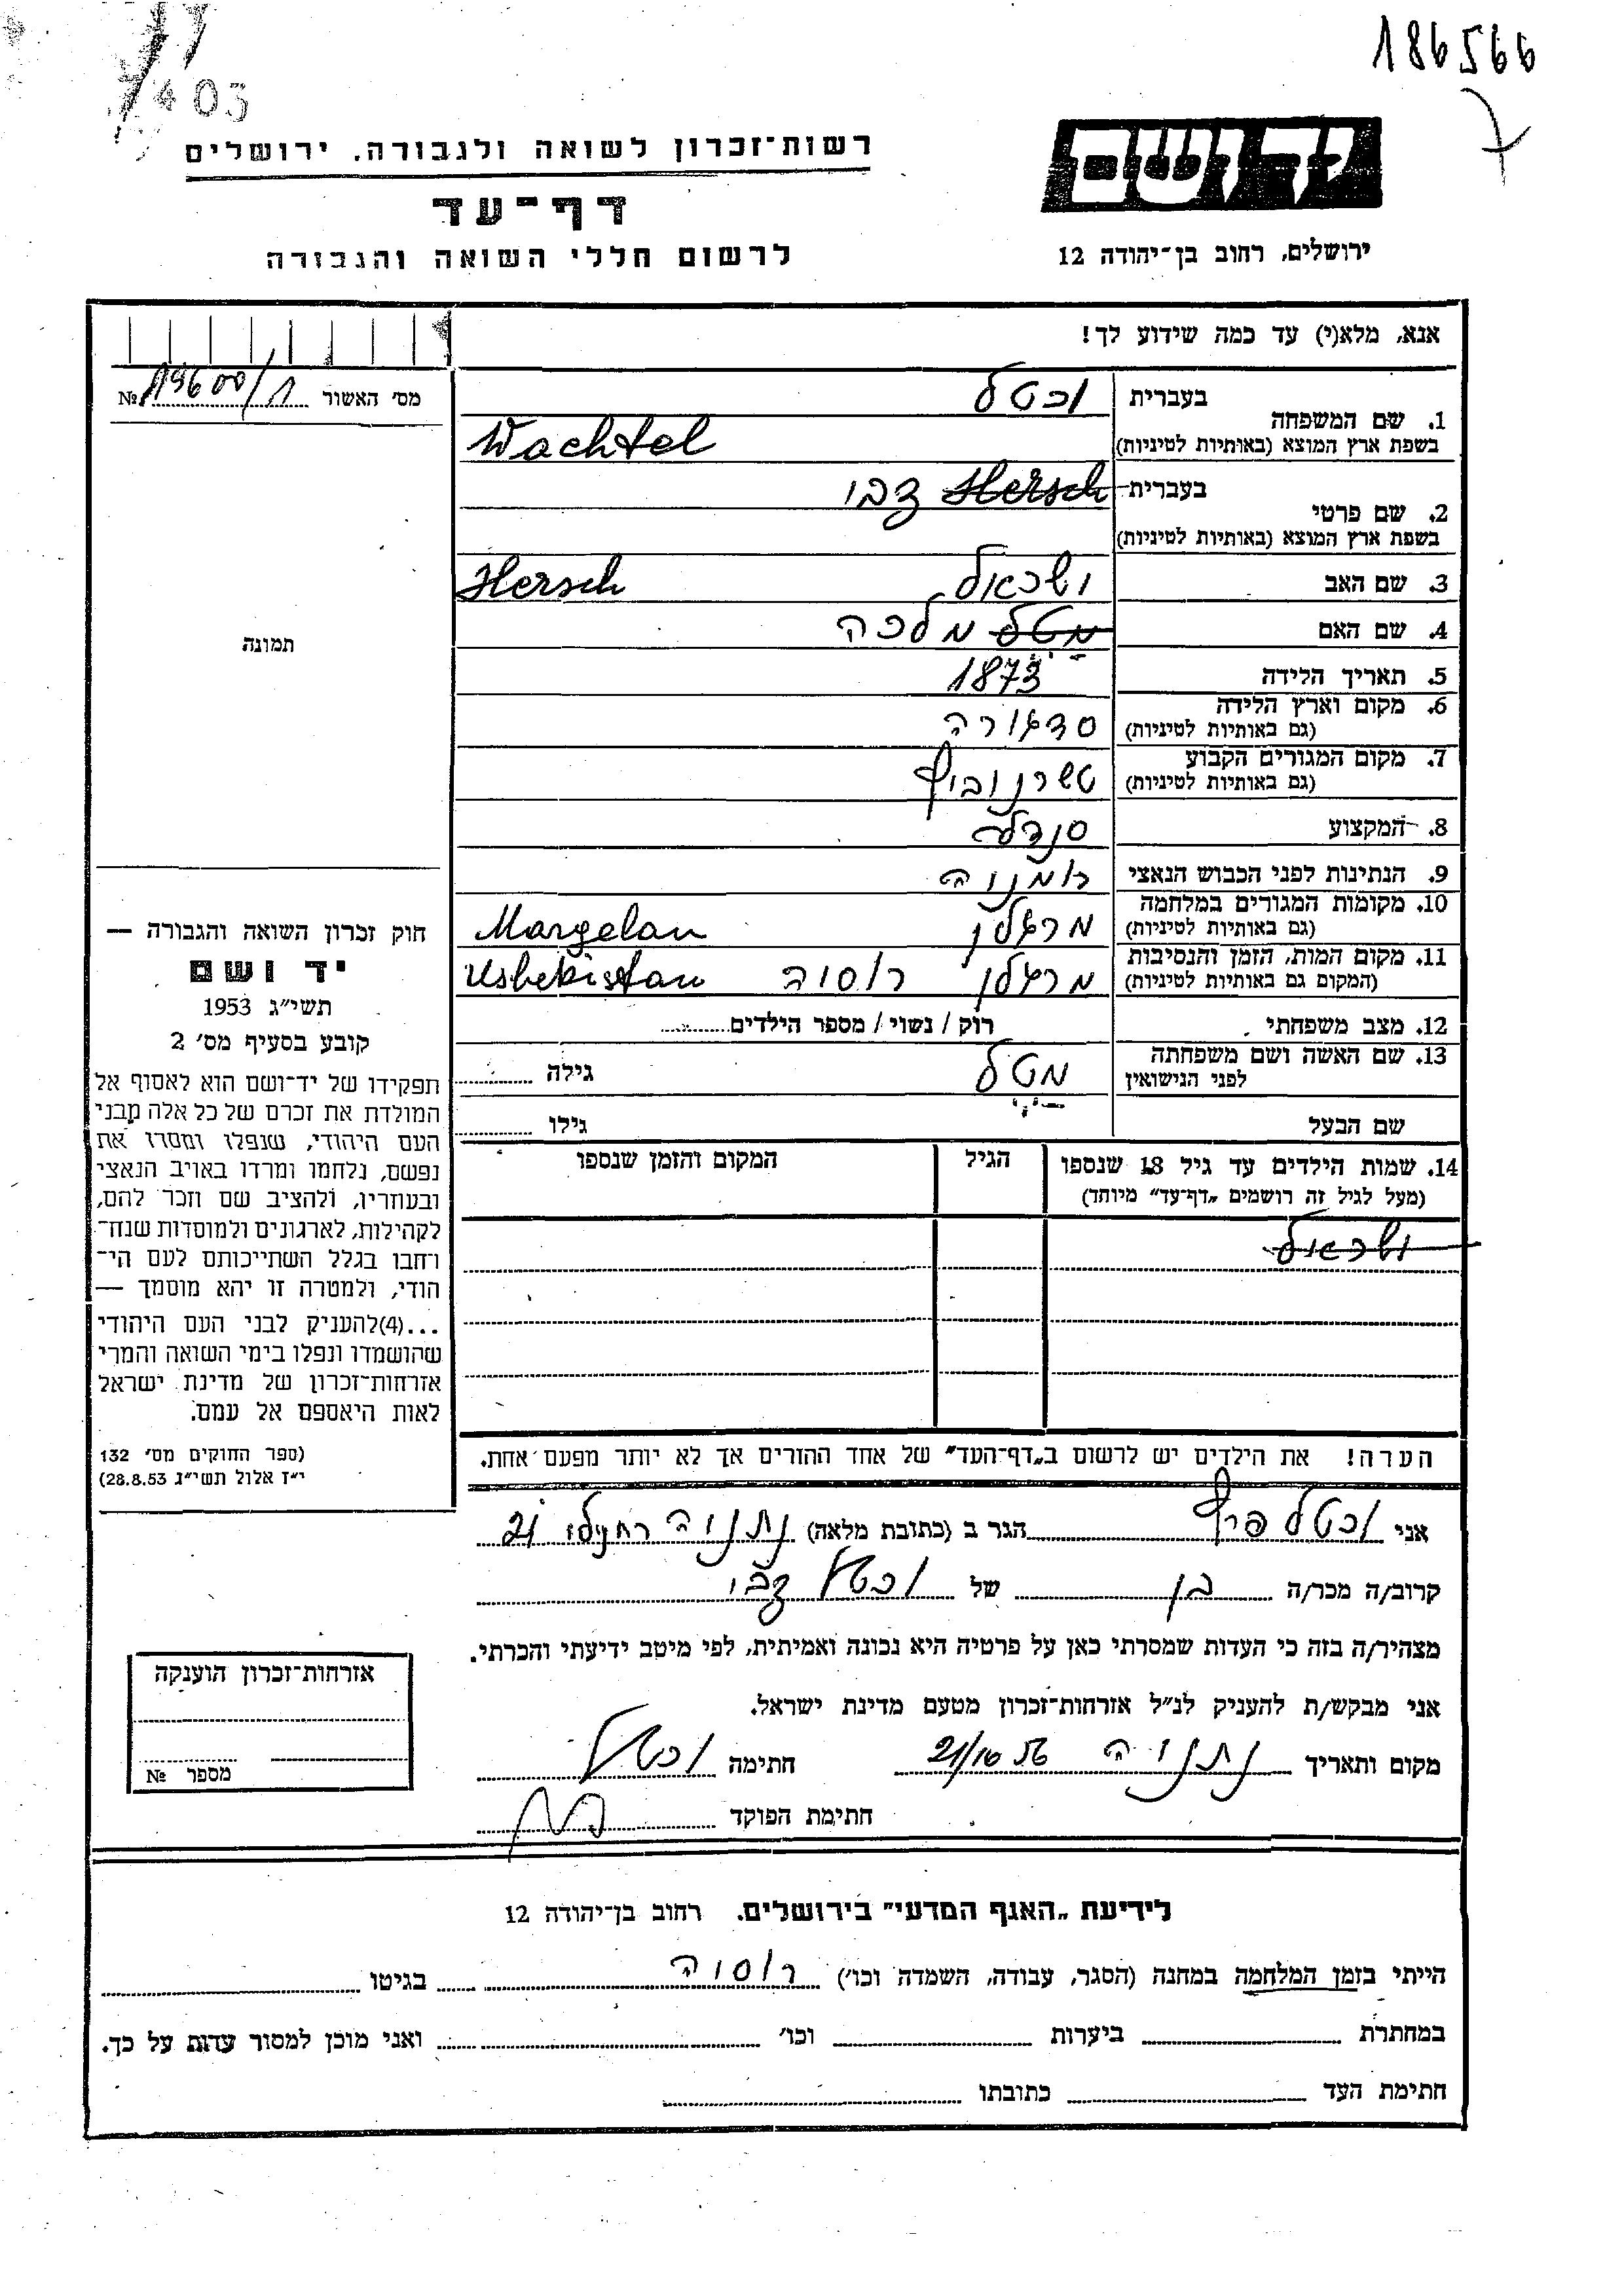 186566
403
רשות־זכרון לשואה ולגבורה. ירושלים
יד ושם
דף־עד
לרשום חללי השואה והגבורה
ירושלים, רחוב בן־יהודה 12
אנא, מלא(י) עד כמה שידוע לך!
מס' האשור № 19600/
1. שם המשפחה
בעברית וכטל
בשפת ארץ המוצא (באותיות לטיניות) Wachtel
2. שם פרטי
בעברית Hersch צבי
בשפת ארץ המוצא (באותיות לטיניות)
3. שם האב ישראל Hersch
4. שם האם מטל מלכה
5. תאריך הלידה 1873
6. מקום וארץ הלידה סדגורה
(גם באותיות לטיניות)
7. מקום המגורים הקבוע טשרנוביץ
(גם באותיות לטיניות)
8. המקצוע סנדלר
9. הנתינות לפני הכבוש הנאצי רומניה
10. מקומות המגורים במלחמה מרגלן Margelan
(גם באותיות לטיניות)
11. מקום המות, הזמן והנסיבות מרגלן רוסיה Usbekistan
(המקום גם באותיות לטיניות)
12. מצב משפחתי רוק / נשוי / מספר הילדים
13. שם האשה ושם משפחתה מטל גילה
לפני הנישואין
שם הבעל גילו
14. שמות הילדים עד גיל 18 שנספו הגיל המקום והזמן שנספו
(מעל לגיל זה רושמים „דף־עד" מיוחד)
ישראל
הערה! את הילדים יש לרשום ב„דף־העד" של אחד ההורים אך לא יותר מפעם אחת.
תמונה
חוק זכרון השואה והגבורה —
יד ושם
תשי"ג 1953
קובע בסעיף מס' 2
תפקידו של יד־ושם הוא לאסוף אל
המולדת את זכרם של כל אלה מבני
העם היהודי, שנפלו ומסרו את
נפשם, נלחמו ומרדו באויב הנאצי
ובעוזריו, ולהציב שם וזכר להם,
לקהילות, לארגונים ולמוסדות שנח־
רבו בגלל השתייכותם לעם הי־
הודי, ולמטרה זו יהא מוסמך —
...(4)להעניק לבני העם היהודי
שהושמדו ונפלו בימי השואה והמרי
אזרחות־זכרון של מדינת ישראל
לאות היאספם אל עמם.
(ספר החוקים מס' 132
י"ז אלול תשי"ג 28.8.53)
אני וכטל הגר ב (כתובת מלאה) נתניה 21
קרוב/ה מכר/ה בן של וכטל צבי
מצהיר/ה בזה כי העדות שמסרתי כאן על פרטיה היא נכונה ואמיתית, לפי מיטב ידיעתי והכרתי.
אני מבקש/ת להעניק לנ"ל אזרחות־זכרון מטעם מדינת ישראל.
מקום ותאריך נתניה 21/10 56 חתימה וכטל
חתימת הפוקד
אזרחות־זכרון הוענקה
מספר №
לידיעת „האגף המדעי" בירושלים. רחוב בן־יהודה 12
הייתי בזמן המלחמה במחנה (הסגר, עבודה, השמדה וכו') רוסיה בגיטו
במחתרת ביערות וכו' ואני מוכן למסור עדות על כך.
חתימת העד כתובתו